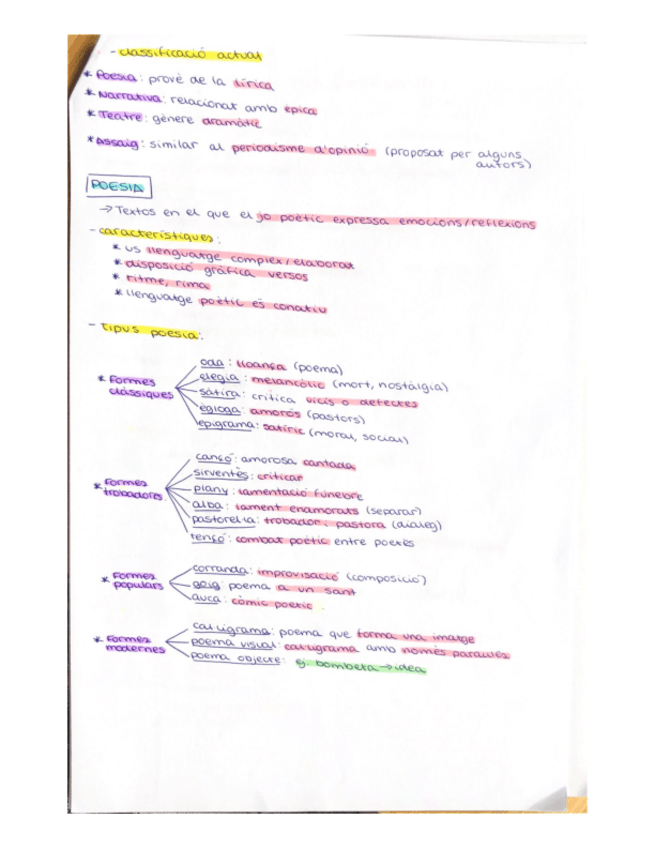 - classificació actual
* Poesia: prové de la lírica
* Narrativa: relacionat amb èpica
* Teatre: gènere dramàtic
* Assaig: similar al periodisme d'opinió (proposat per alguns
autors)
POESIA
→ Textos en el que el jo poètic expressa emocions/reflexions
- característiques:
* us llenguatge complex/elaborat
* disposició gràfica versos
* ritme, rima
* llenguatge poètic és conatiu
- Tipus poesia:
* Formes clàssiques
oda: lloança (poema)
elegia: melancòlic (mort, nostàlgia)
sàtira: crítica vicis o defectes
ègloga: amorós (pastors)
epigrama: satíric (moral, social)
* Formes trobadores
cançó: amorosa cantada
sirventès: criticar
plany: lamentació fúnebre
alba: lament enamorats (separar)
pastorel·la: trobador i pastora (diàleg)
tençó: combat poètic entre poetes
* Formes populars
corranda: improvisació (composició)
goig: poema a un sant
auca: còmic poètic
* Formes modernes
cal·ligrama: poema que forma una imatge
poema visual: cal·ligrama amb només paraules
poema objecte: ej. bombeta → idea